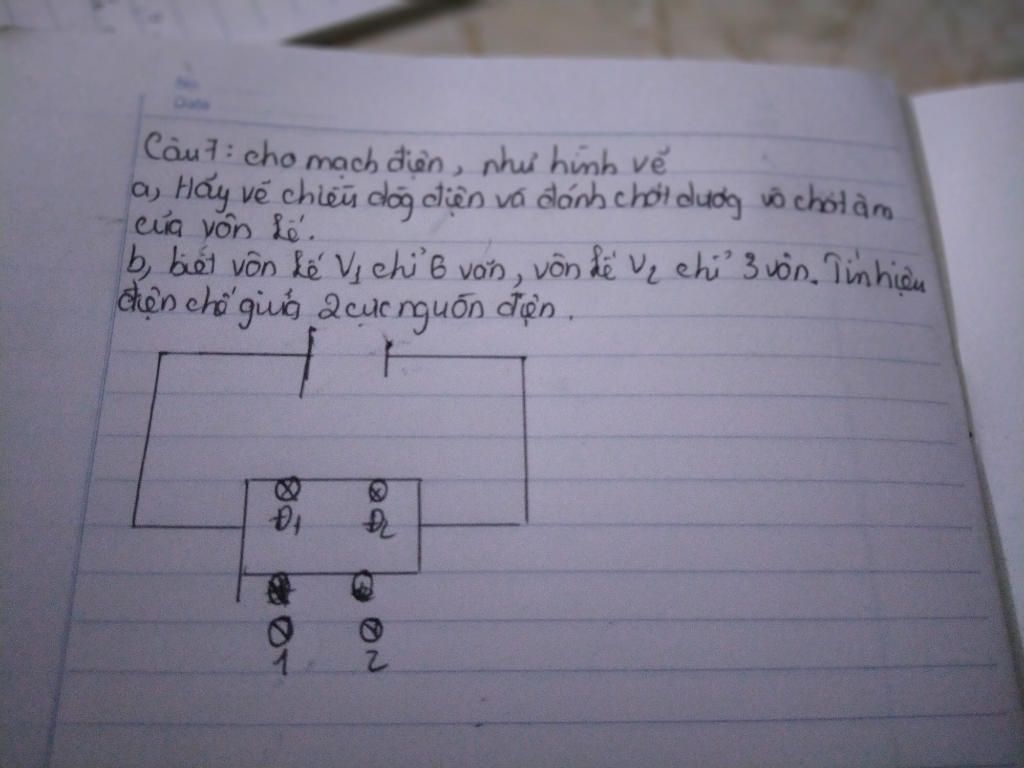 No.
Date
Câu 7: cho mạch điện, như hình vẽ
a, Hãy vẽ chiều dòg điện và đánh chốt dươg và chốt âm
của vôn kế.
b, biết vôn kế V1 chỉ 6 vôn, vôn kế V2 chỉ 3 vôn. Tính hiệu
điện chế giữa 2 cực nguồn điện.
Đ1 Đ2
1 2